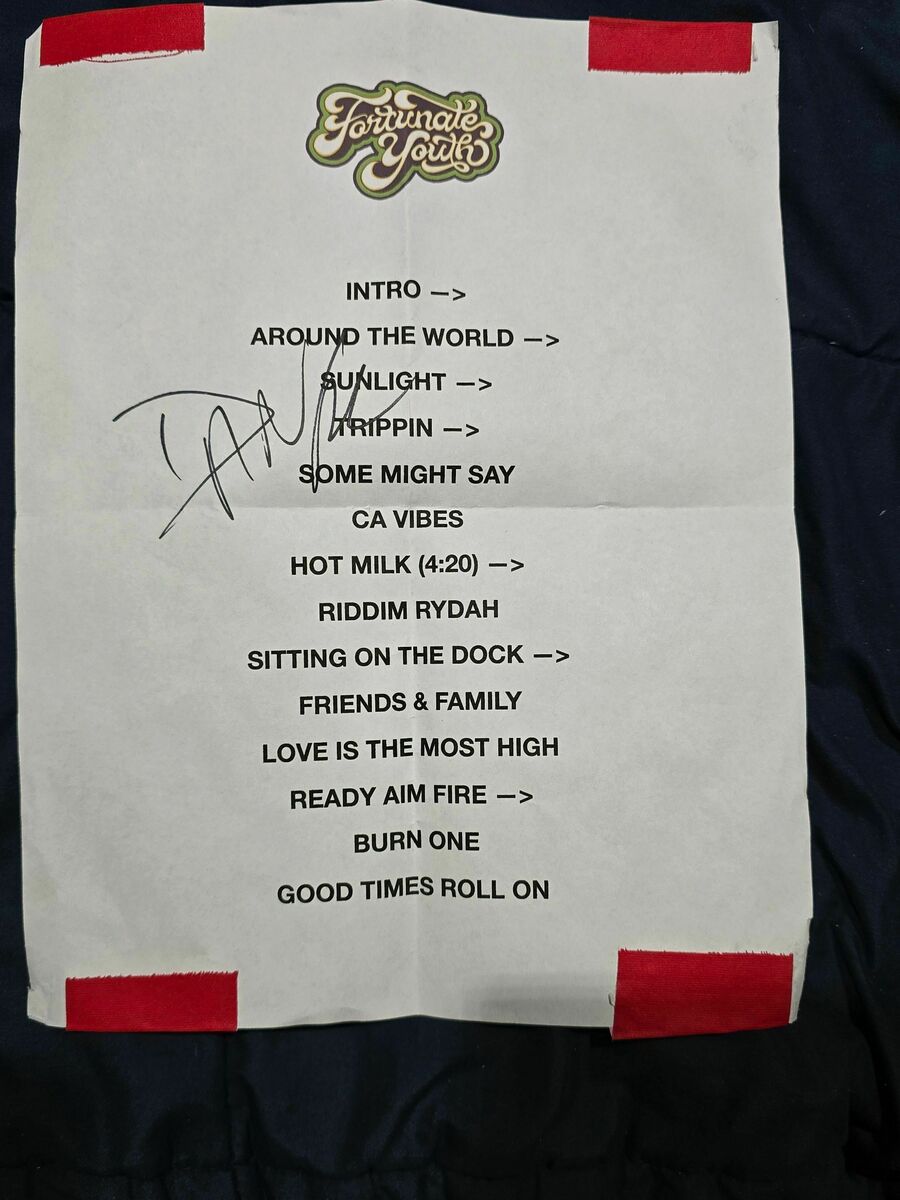 Fortunate
Youth
INTRO —>
AROUND THE WORLD —>
SUNLIGHT —>
TRIPPIN —>
SOME MIGHT SAY
CA VIBES
HOT MILK (4:20) —>
RIDDIM RYDAH
SITTING ON THE DOCK —>
FRIENDS & FAMILY
LOVE IS THE MOST HIGH
READY AIM FIRE —>
BURN ONE
GOOD TIMES ROLL ON